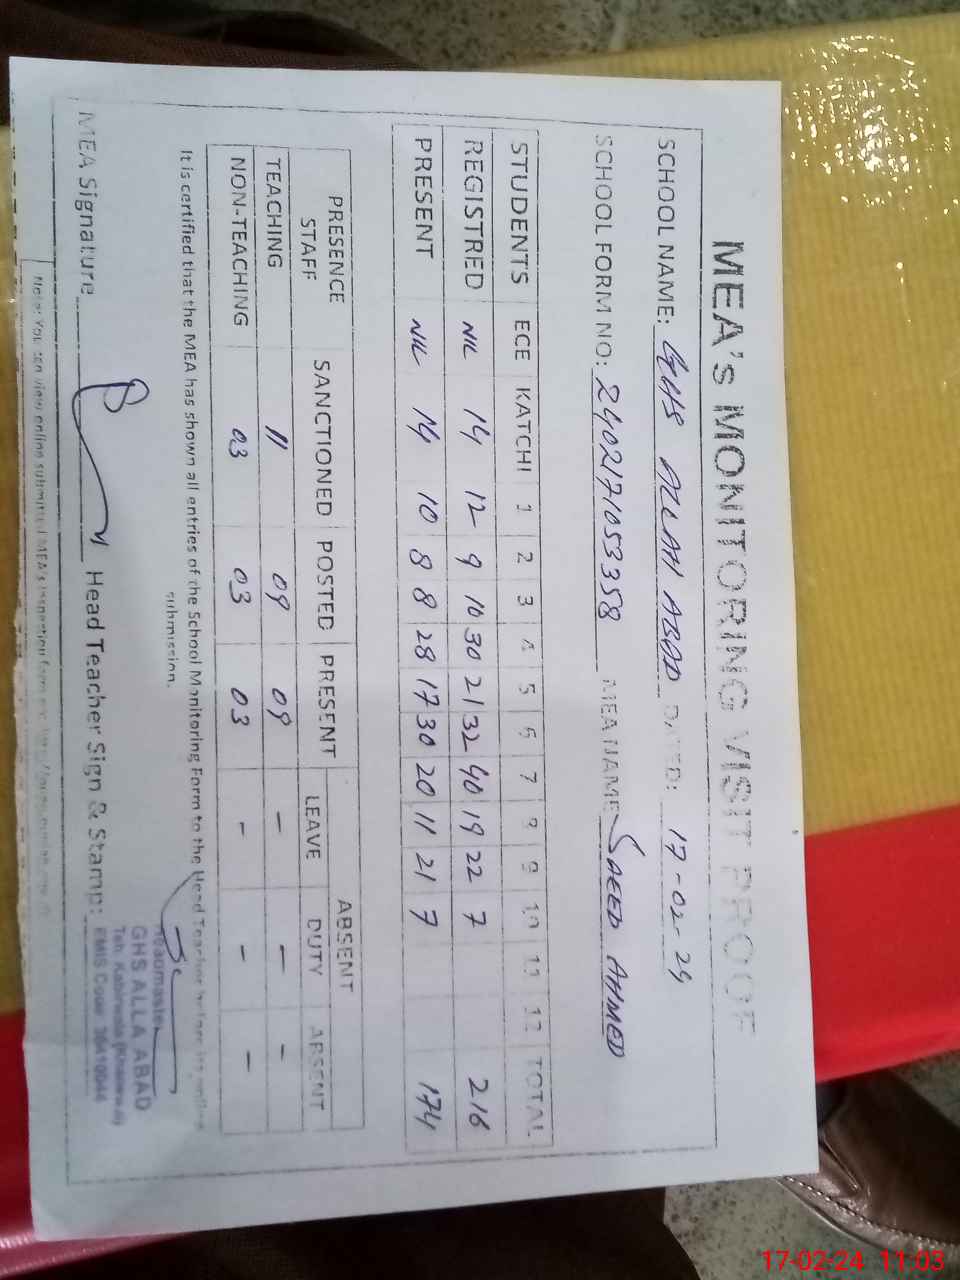 MEA's MONITORING VISIT PROOF
SCHOOL NAME: GHS ALLAH ABAD DATED: 17-02-24
SCHOOL FORM NO: 2402171053358 MEA NAME SAEED AHMED
STUDENTS ECE KATCHI 1 2 3 4 5 6 7 8 9 10 11 12 TOTAL
REGISTRED NIL 14 12 9 10 30 21 32 40 19 22 7 216
PRESENT NIL 14 10 8 8 28 17 30 20 11 21 7 174
PRESENCE STAFF SANCTIONED POSTED PRESENT ABSENT
LEAVE DUTY ABSENT
TEACHING 11 09 09 - - -
NON-TEACHING 03 03 03 - - -
It is certified that the MEA has shown all entries of the School Monitoring Form to the Head Teacher before its online
submission.
MEA Signature Head Teacher Sign & Stamp:
Headmaster
GHS ALLA ABAD
Teh. Kabirwala (Khanewal)
EMIS Code:
Note: You can view online submitted MEA's inspection form
17-02-24 11:03